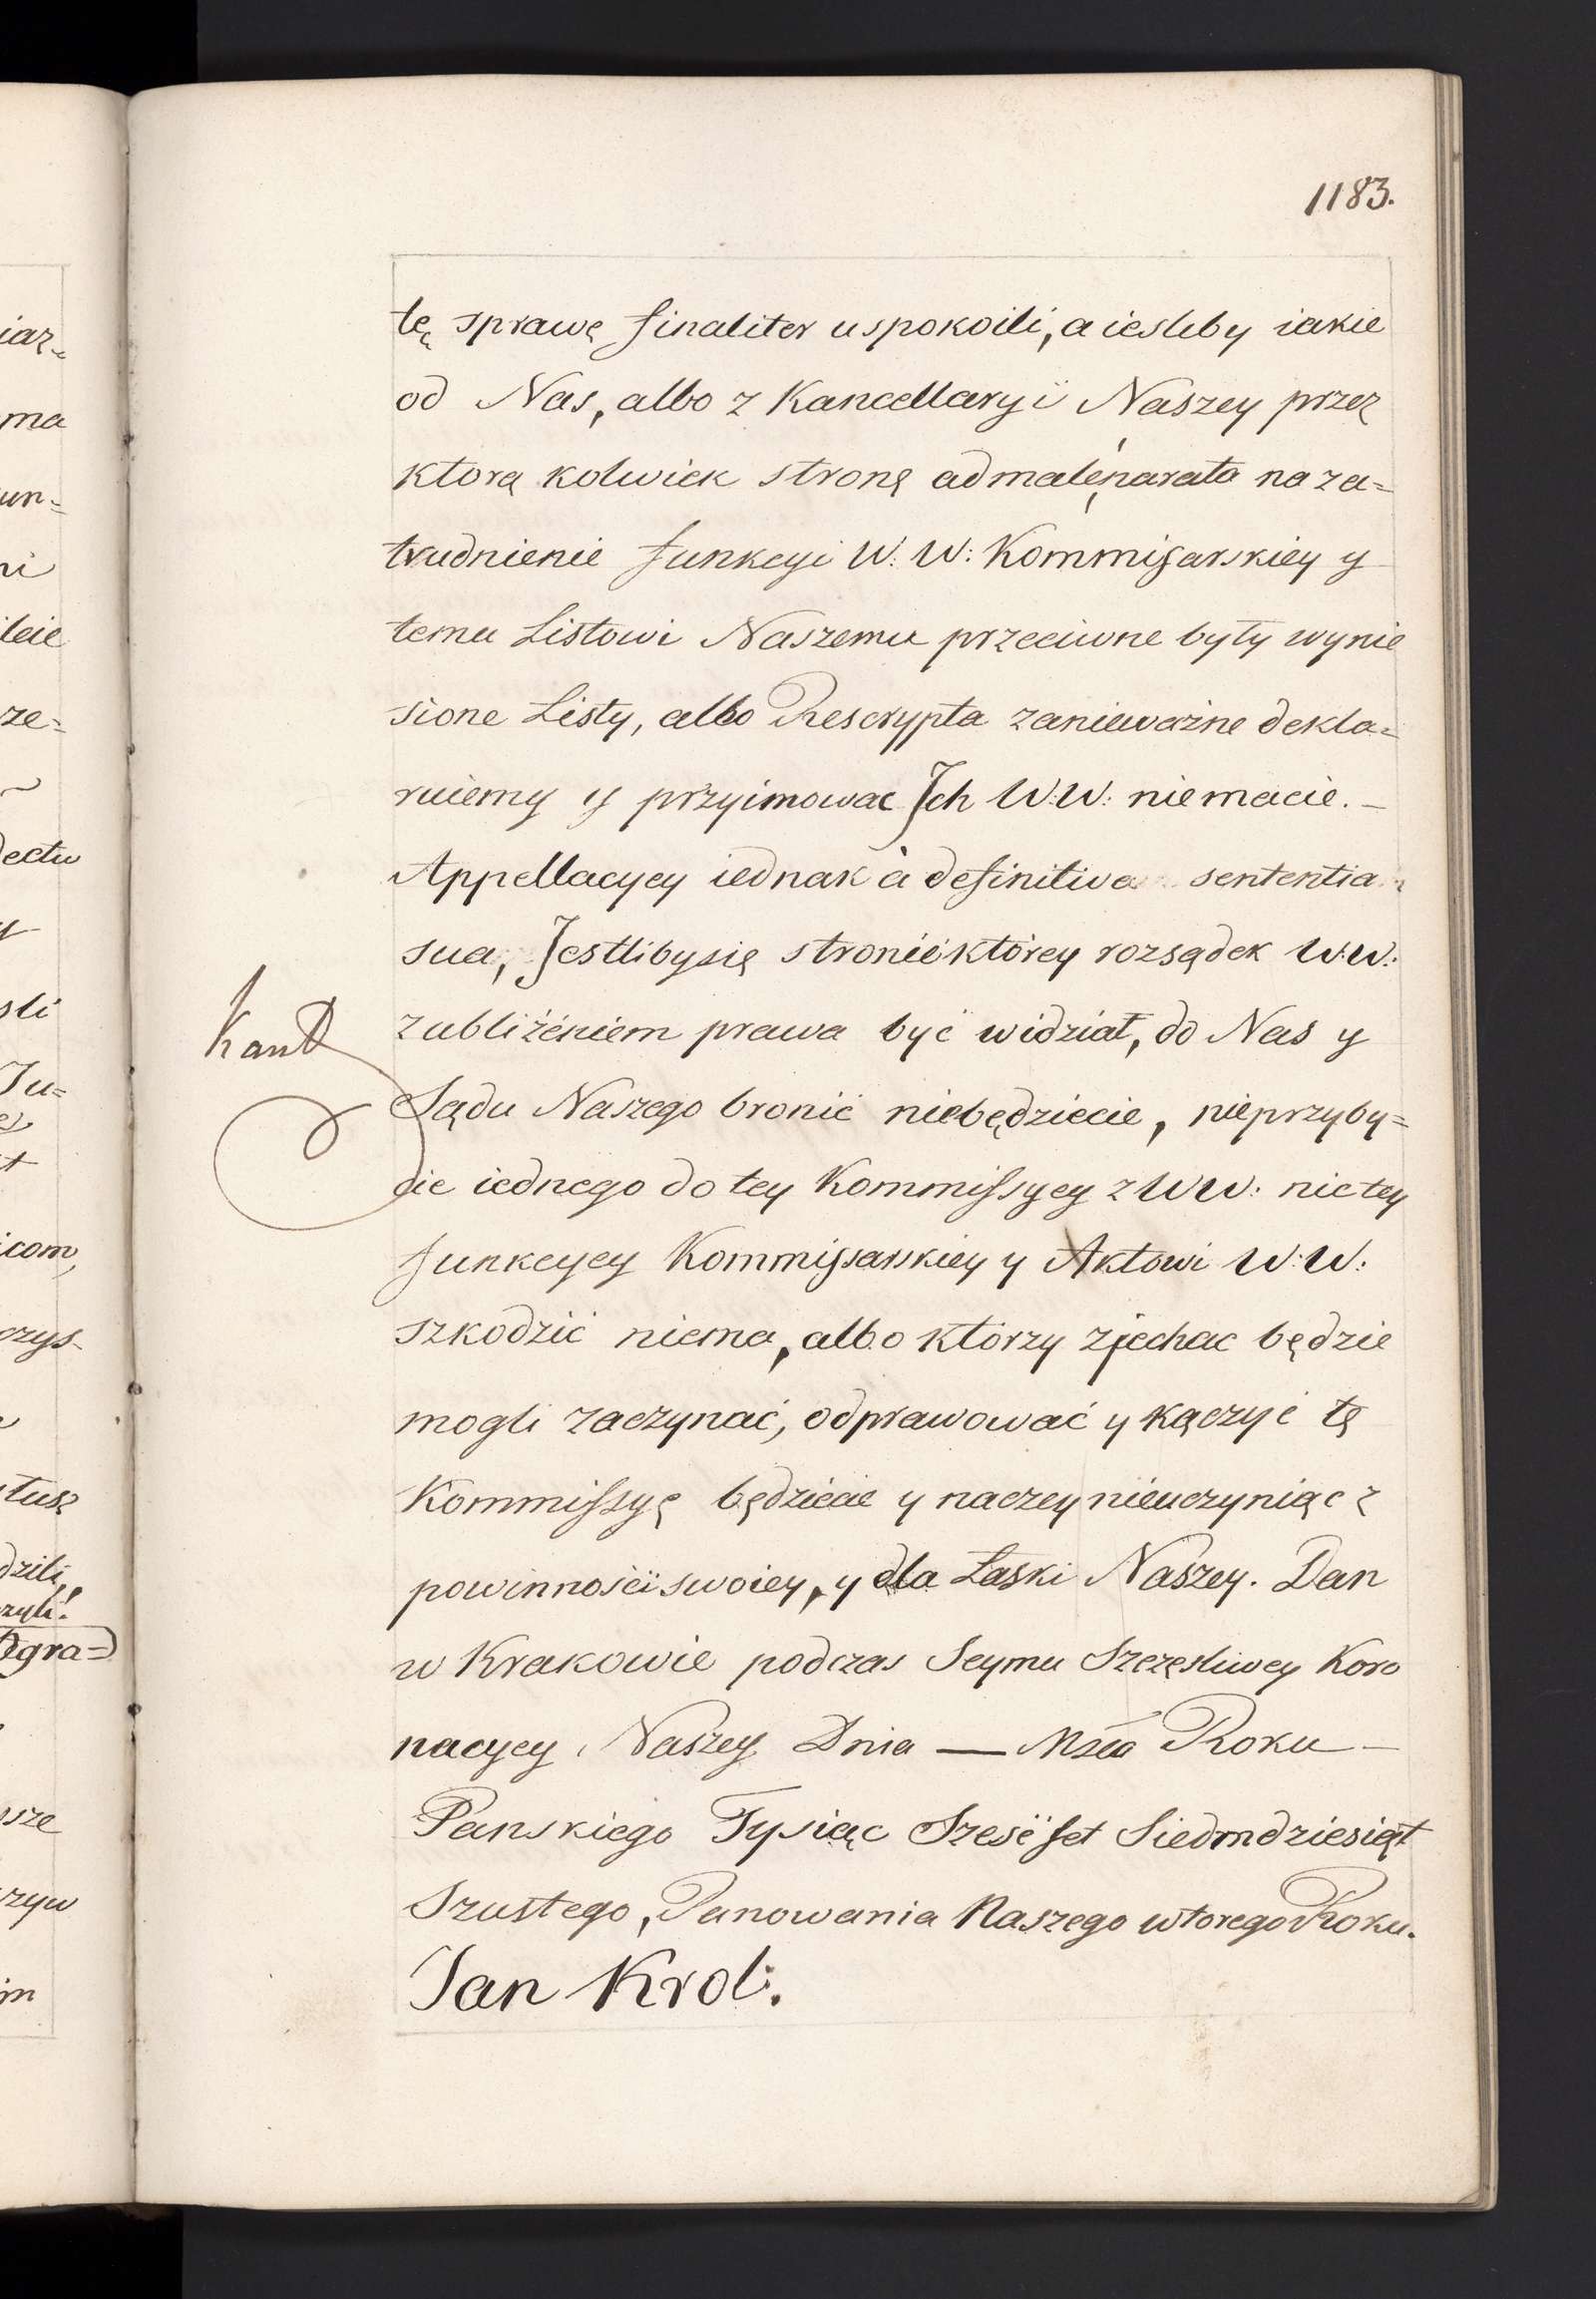 1183.
tę sprawę finaliter uspokoili, a iesliby iakie
od Nas, albo z Kancellaryi Naszey przez
ktorą kolwiek stronę ad malę narata na za=
trudnienie funkcyi W: W: Kommissarskiey y
temu Listowi Naszemu przeciwne były wynie
sione Listy, albo Rescrypta zanieważne dekla=
ruiemy y przyimowac Ich W:W: niemacie. —
Appellacyey iednak à definitiva sententia
sua, Jestlibysię stronie ktorey rozsądek W:W:
z ubliżeniem prawa być widział, do Nas y
Sądu Naszego bronić niebędziecie, nieprzyby=
cie iednego do tey Kommissyey z WW: nic tey
funkcyey Kommissarskiey y Aktowi W:W:
szkodzić niema, albo ktorzy zjechac będzie
mogli zaczynać, odprawować y kączyć tę
Kommissyę będziecie y naczey nieuczyniąc z
powinności swoiey, y dla Łaski Naszey. Dan
w Krakowie podczas Seymu Szczęsliwey Koro
nacyey Naszey Dnia — Msca Roku —
Panskiego Tysiąc Szescset Siedmdziesiąt
Szustego, Panowania Naszego wtorego Roku.
Jan Krol.